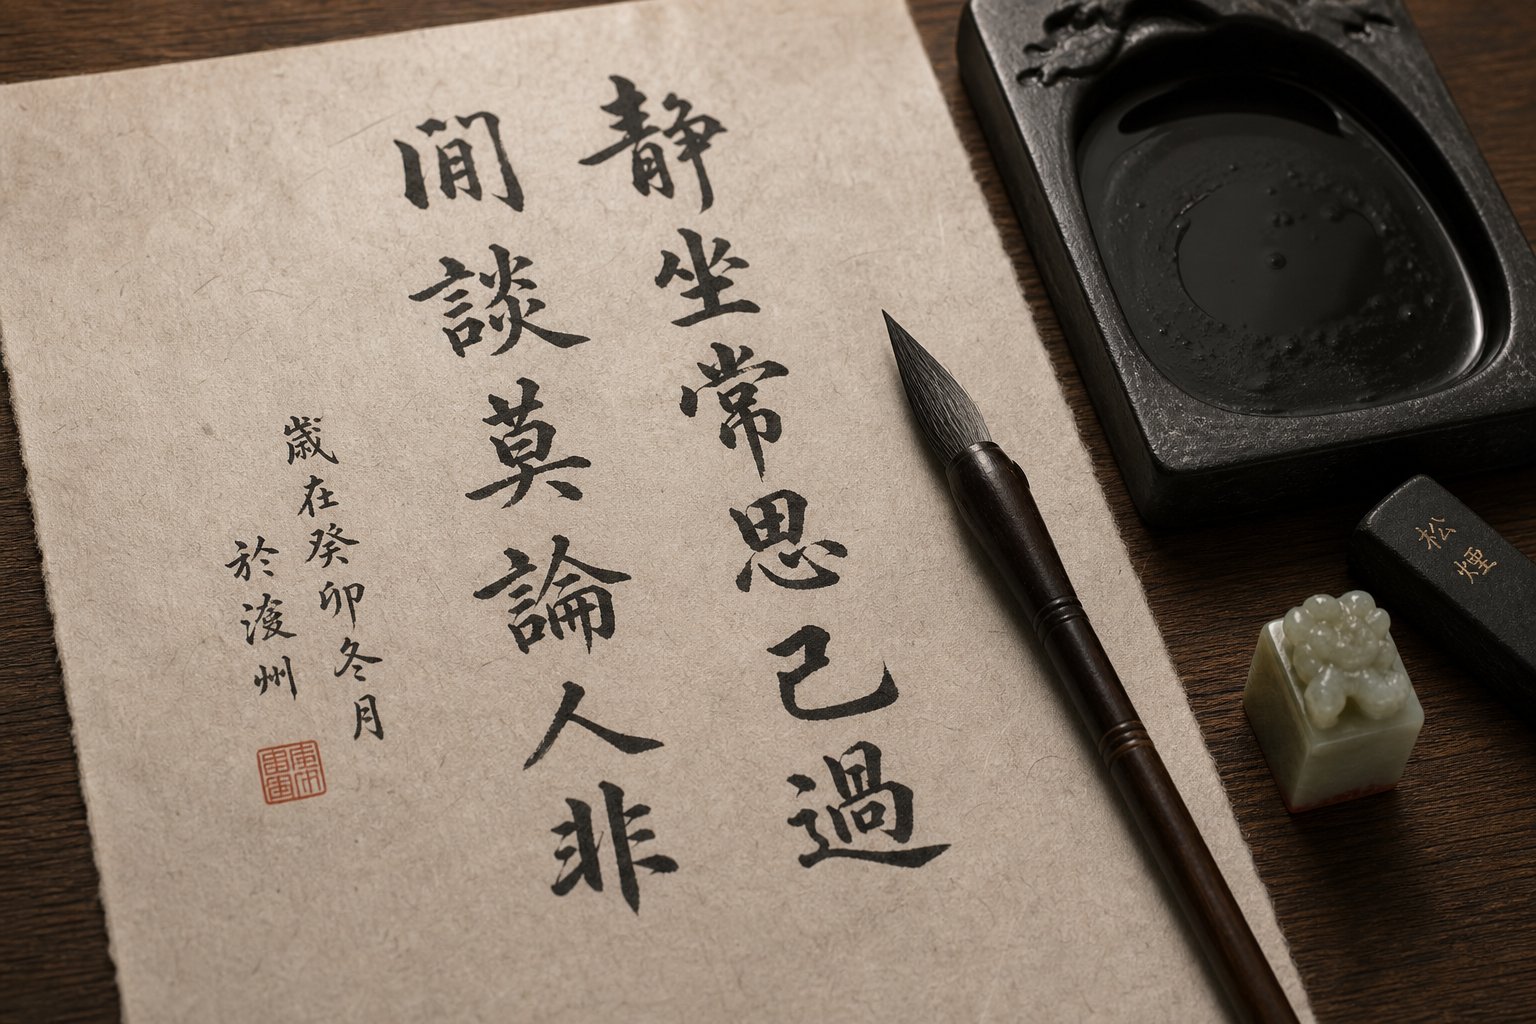 静坐常思己過
閒談莫論人非
歲在癸卯冬月
於州
松煙